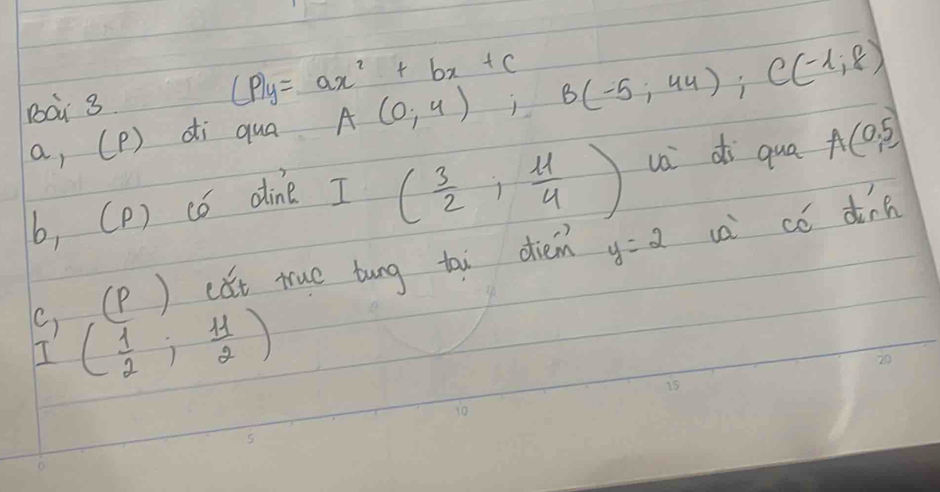 Bài 3. (P) y = ax² + bx + c
a, (P) đi qua A (0; 4) ; B(-5; 44) ; C(-1; 8)
b, (P) có đỉnh I (3/2 ; 11/4) và đi qua A(0;5)
c, (P) cắt trục tung tại điểm y = 2 và có đỉnh
I (1/2 ; 11/2)
0 5 10 15 20